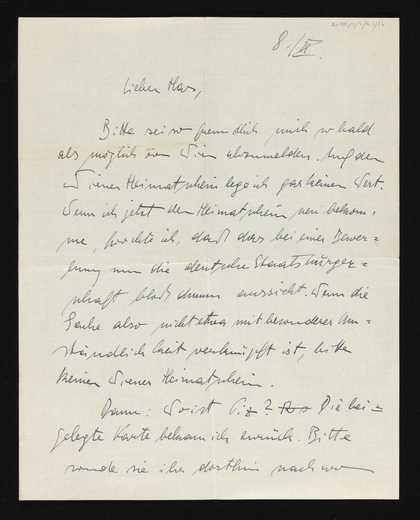 8./IX.
Lieber Hans,
Bitte sei so freundlich mich so bald
als möglich von Wien abzumelden. Auf den
Wiener Heimatschein lege ich gar keinen Wert.
Wenn ich jetzt den Heimatschein neu bekom-
me, fürchte ich, daß das bei einer Bewer-
bung um die deutsche Staatsbürger-
schaft bloß dumm aussieht. Wenn die
Sache also nicht etwa mit besonderer Um-
ständlichkeit verknüpft ist, bitte
keinen Wiener Heimatschein.
Dann: Wo ist ? Die bei-
gelegte Karte bekam ich zurück. Bitte
sende sie ihr dorthin nach wo